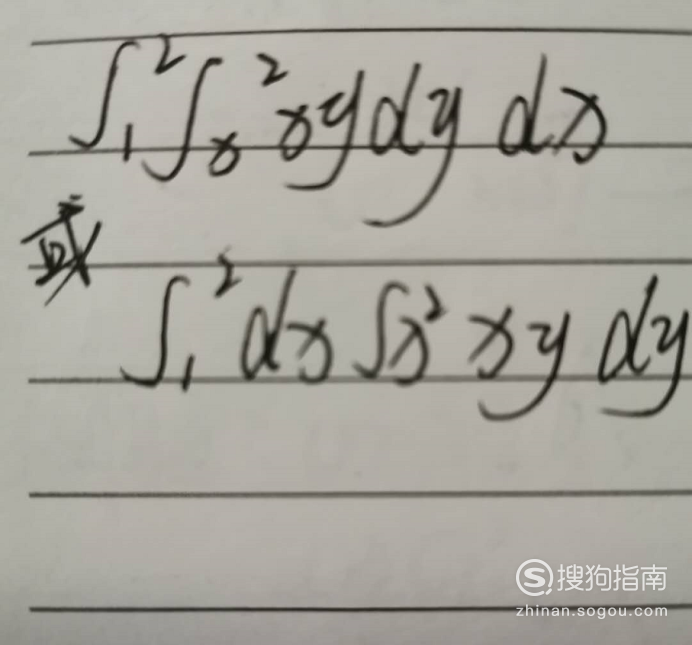 ∫₁² ∫ₓ² xy dy dx
或
∫₁² dx ∫ₓ² xy dy
搜狗指南
zhinan.sogou.com